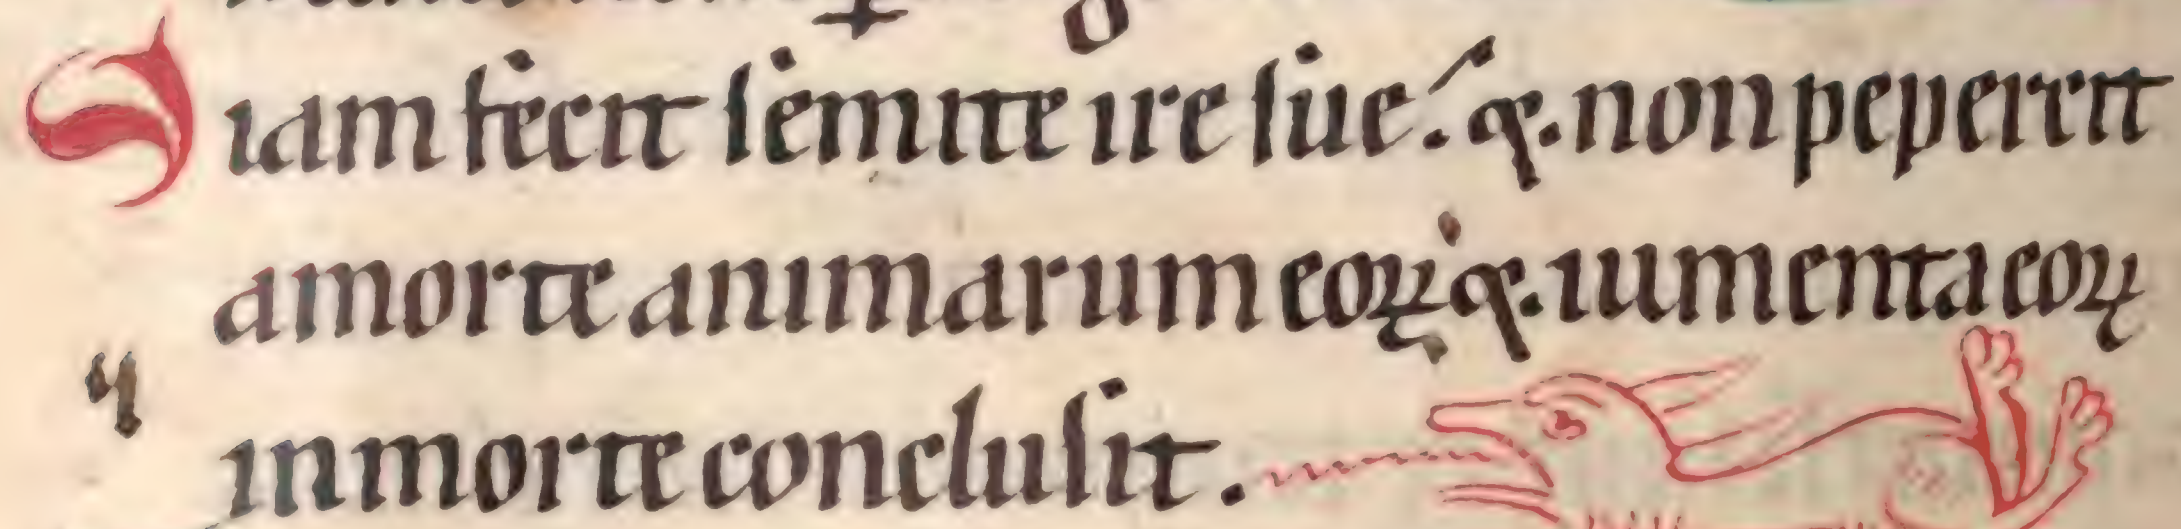 Viam fecit semite ire sue: & non pepercit
a morte animarum eoꝝ & iumenta eoꝝ
in morte conclusit.